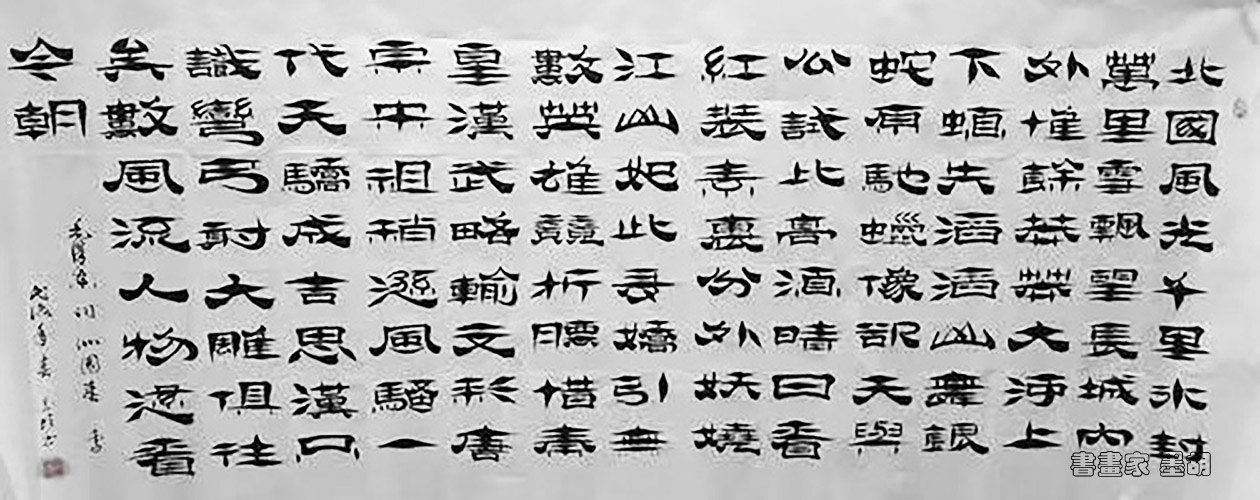 北國風光千里冰封
萬里雪飄望長城內
外惟餘莽莽大河上
下頓失滔滔山舞銀
蛇原馳蠟像欲天與
公試比高須晴日看
紅裝素裹分外妖嬈
江山如此多嬌引無
數英雄競折腰惜秦
皇漢武略輸文彩唐
宗宋祖稍遜風騷一
代天驕成吉思漢只
識彎弓射大雕俱往
矣數風流人物還看
今朝
毛澤東詞沁園春雪
戊戌年春
書畫家 墨胡